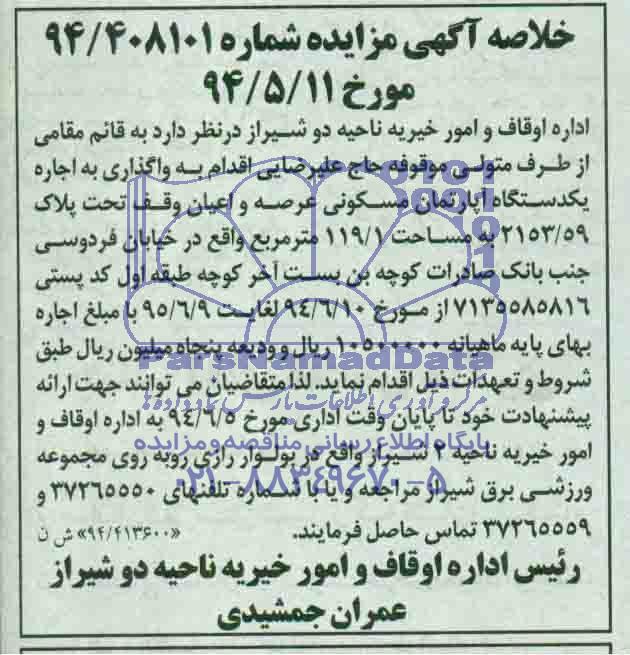 خلاصه آگهی مزایده شماره ۹۴/۴۰۸۱۰۱
مورخ ۹۴/۵/۱۱
اداره اوقاف و امور خیریه ناحیه دو شیراز درنظر دارد به قائم مقامی
از طرف متولی موقوفه حاج علیرضایی اقدام به واگذاری به اجاره
یکدستگاه آپارتمان مسکونی عرصه و اعیان وقف تحت پلاک
۲۱۵۳/۵۹ به مساحت ۱۱۹/۱ مترمربع واقع در خیابان فردوسی
جنب بانک صادرات کوچه بن بست آخر کوچه طبقه اول کد پستی
۷۱۳۵۵۸۵۸۱۶ از مورخ ۹٤/٦/۱۰ لغایت ۹۵/٦/۹ با مبلغ اجاره
بهای پایه ماهیانه ۱۰۵۰۰۰۰۰ ریال و ودیعه پنجاه میلیون ریال طبق
شروط و تعهدات ذیل اقدام نماید. لذا متقاضیان می توانند جهت ارائه
پیشنهادت خود تا پایان وقت اداری مورخ ۹٤/٦/۵ به اداره اوقاف و
امور خیریه ناحیه ۲ شیراز واقع در بولوار رازی روبه روی مجموعه
ورزشی برق شیراز مراجعه و یا با شماره تلفنهای ۳۷۲٦۵۵۵۰ و
۳۷۲٦۵۵۵۹ تماس حاصل فرمایند. «۹۴/۴۱۳۶۰۰» ش ن
رئیس اداره اوقاف و امور خیریه ناحیه دو شیراز
عمران جمشیدی
ParsNamadData
مرکز فرآوری اطلاعات پارس نماد داده ها
پایگاه اطلاع رسانی مناقصه و مزایده
۰۲۱-۸۸۳۴۹۶۷۰-۵